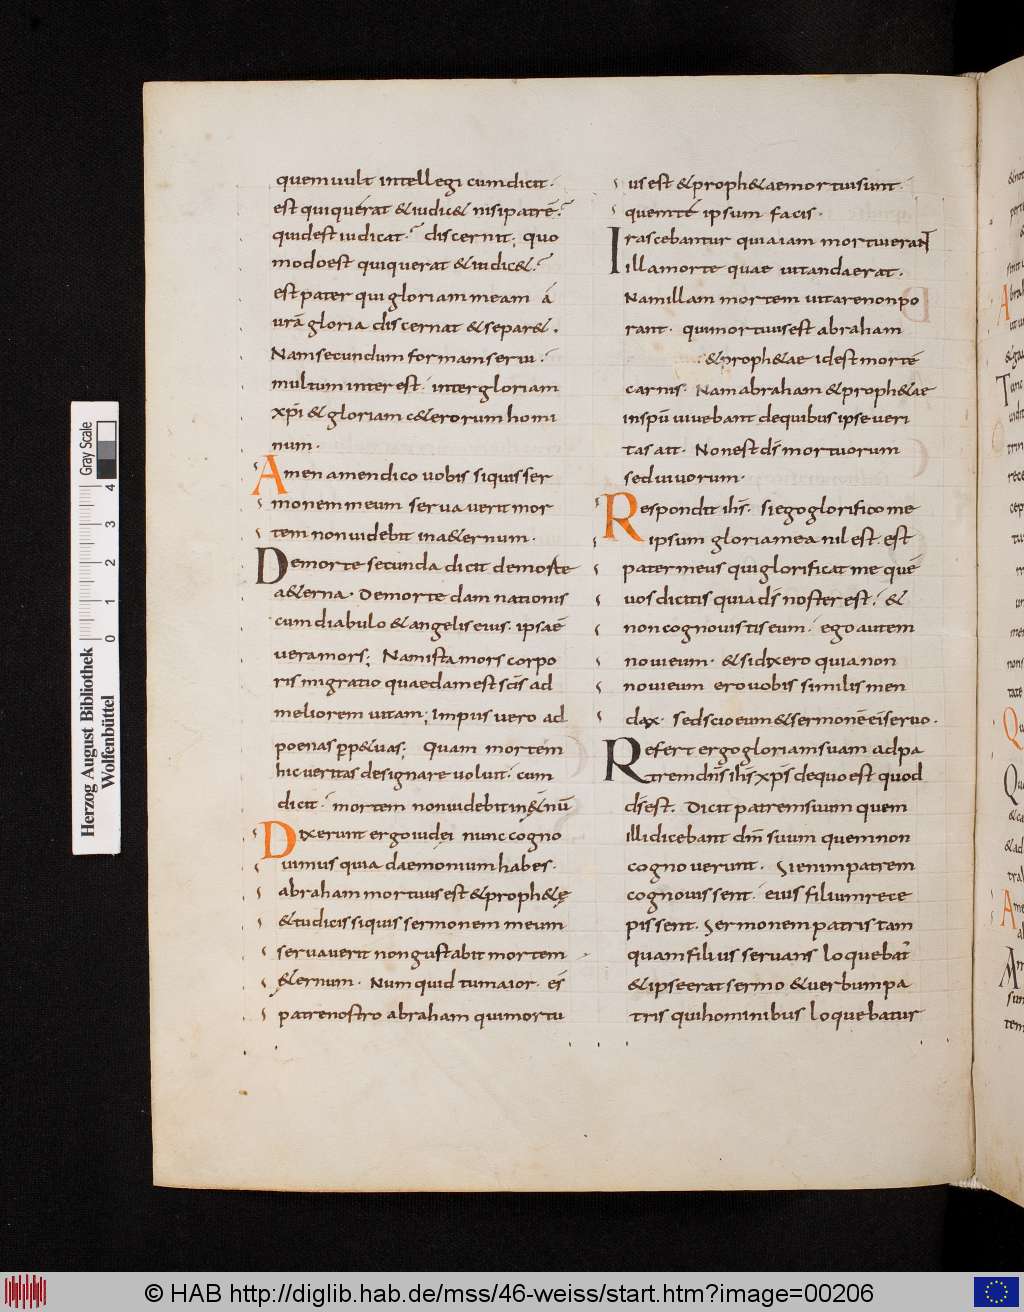 quem uult intellegi cum dicit.
est qui querat & iudic& nisi patrē?
quid est iudicat? discernit; quo
modo est qui querat & iudic&?
est pater qui gloriam meam á
urā gloria discernat & separ&.
Nam secundum formam serui.
multum interest. inter gloriam
xpī & gloriam c&erorum homi
num.
Amen amen dico uobis si quis ser
monem meum seruauerit mor
tem non uidebit in a&ernum.
De morte secunda dicit de morte
a&erna. De morte damnationis
cum diabulo & angelis eius. ipsa ē
uera mors; Nam ista mors corpo
ris migratio quaedam est scīs ad
meliorem uitam; impiis uero ad
poenas pp&uas; Quam mortem
hic ueritas designare uoluit. cum
dicit. mortem non uidebit in &nū
Dixerunt ergo iudei nunc cogno
uimus quia daemonium habes.
abraham mortuus est & proph&ę
& tu dicis si quis sermonem meum
seruauerit non gustabit mortem
&ernum. Numquid tu maior. és
patre nostro abraham qui mortu
us est & proph&ae mortui sunt.
quem té ipsum facis.
Irascebantur quia iam mortui erant
illa morte quae uitanda erat.
Nam illam mortem uitare non po
rant. qui mortuus est abraham
& proph&ae id est morté
carnis. Nam abraham & proph&ae
in spū uiuebant de quibus ipse ueri
tas ait. Non est ds̄ mortuorum
sed uiuorum.
Respondit ihs̄. si ego glorifico me
ipsum gloria mea nil est. est
pater meus qui glorificat me quē
uos dicitis quia ds̄ noster est. &
non cognouistis eum. ego autem
noui eum. & si dixero quia non
noui eum ero uobis similis men
dax. sed scio eum & sermonē ei seruo.
Refert ergo gloriam suam ad pa
trem dn̄s ihs̄ xps̄ de quo est quod
ds̄ est. Dicit patrem suum quem
illi dicebant dm̄ suum quem non
cognouerunt. Si enim patrem
cognouissent. eius filium rece
pissent. Sermonem patris tam
quam filius seruans loquebat
& ipse erat sermo & uerbum pa
tris qui hominibus loquebatur
Herzog August Bibliothek
Wolfenbüttel
0 1 2 3 4
Gray Scale
© HAB http://diglib.hab.de/mss/46-weiss/start.htm?image=00206